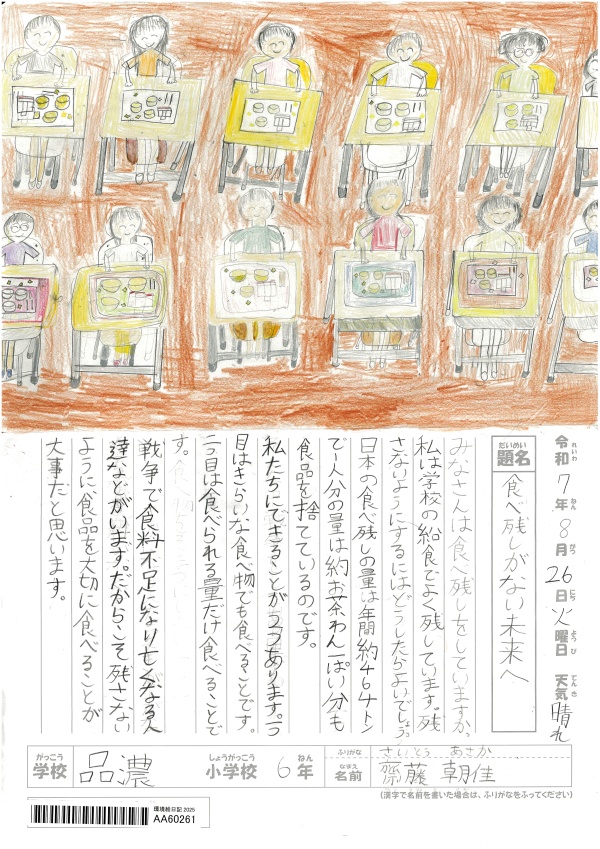 令和7年8月26日火曜日 天気 晴れ
れいわ ねん がつ にち ようび てんき
だいめい
題名 食べ残しがない未来へ
みなさんは食べ残しをしていますか。
私は学校の給食でよく残しています。残
さないようにするにはどうしたらよいでしょう。
日本の食べ残しの量は年間約464トン
で1人分の量は約お茶わん一ぱい分も
食品を捨てているのです。
私たちにできることが2つあります。一つ
目はきらいな食べ物でも食べることです。
二つ目は食べられる量だけ食べることで
す。
戦争で食料不足になり亡くなる人
達などがいます。だからこそ残さない
ように食品を大切に食べることが
大事だと思います。
がっこう しょうがっこう ねん
学校 品濃 小学校 6年
ふりがな さいとう あさか
なまえ
名前 齋藤 朝佳
(漢字で名前を書いた場合は、ふりがなをふってください)
環境絵日記 2025
AA60261